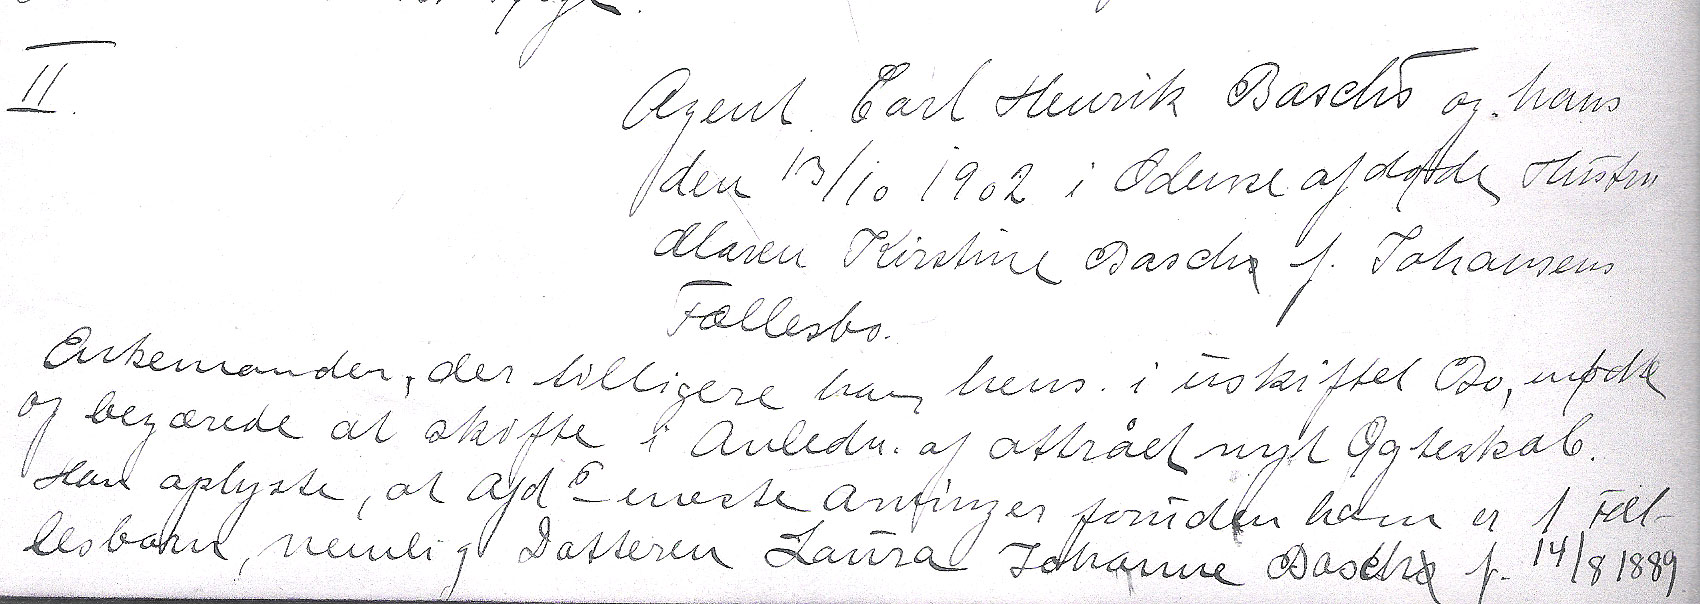 II.
Agent Carl Henrik Baschs og hans
den 13/10 1902 i Odense afdøde Hustru
Maren Kirstine Baschs f. Johansens
Fællesbo.
Enkemanden, der tilligere har hens. i uskiftet Bo, mødte
og begærede at skifte i Anledn. af attrået nyt Ægteskab.
Han oplyste, at Afd.s eneste Arvinger foruden ham er 1 Fæl-
lesbarn, nemlig Datteren Laura Johanne Basch f. 14/8 1889